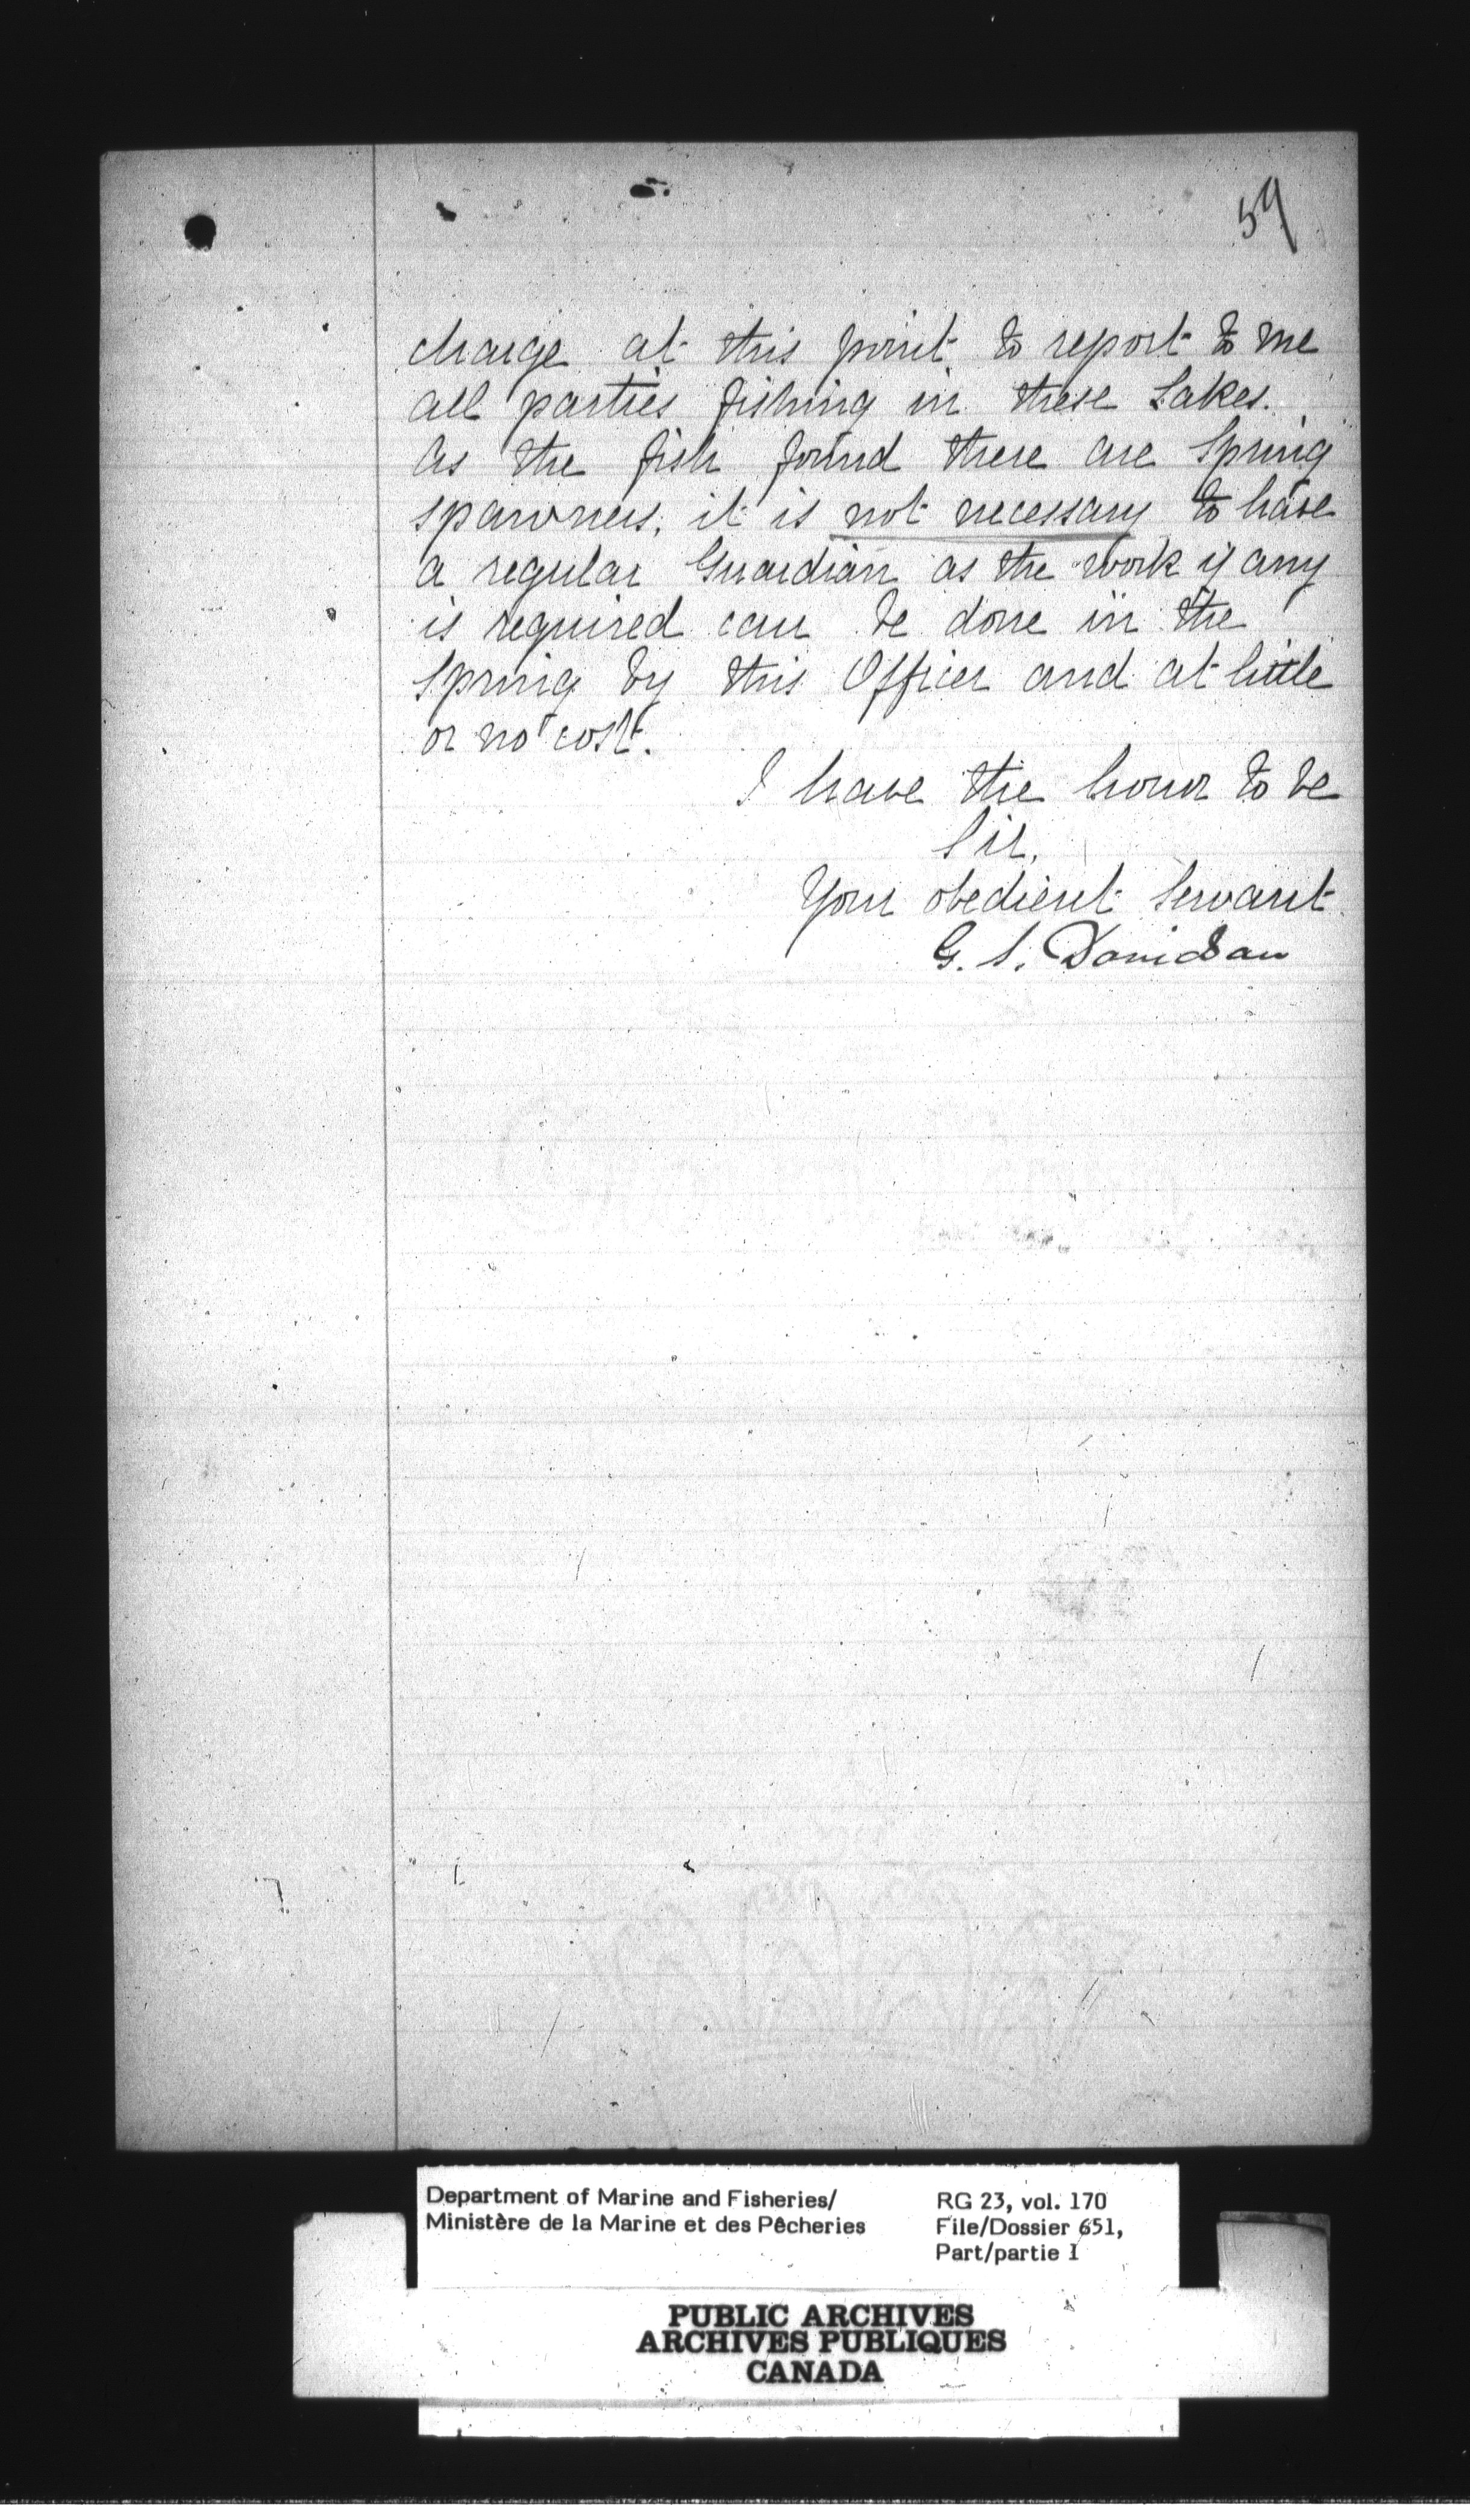 59
charge at this point to report to me
all parties fishing in these Lakes.
As the fish found there are Spring
spawners, it is not necessary to have
a regular Guardian as the work if any
is required can be done in the
Spring by this Officer and at little
or no cost.
I have the honor to be
Sir,
Your obedient Servant
G. S. Davidson
Department of Marine and Fisheries/
Ministère de la Marine et des Pêcheries
RG 23, vol. 170
File/Dossier 651,
Part/partie 1
PUBLIC ARCHIVES
ARCHIVES PUBLIQUES
CANADA